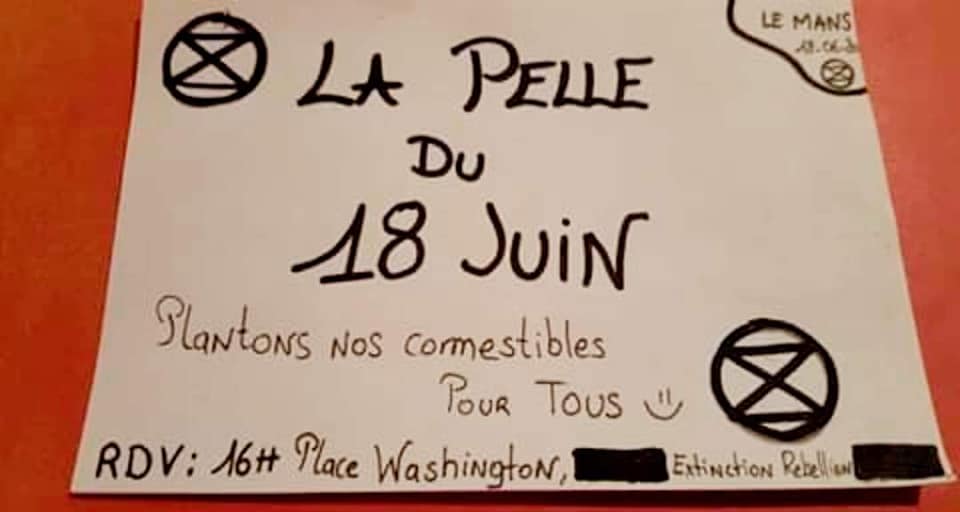 LE MANS
LA PELLE
DU
18 JUIN
Plantons nos comestibles
POUR TOUS
RDV: 16H Place Washington, Extinction Rebellion